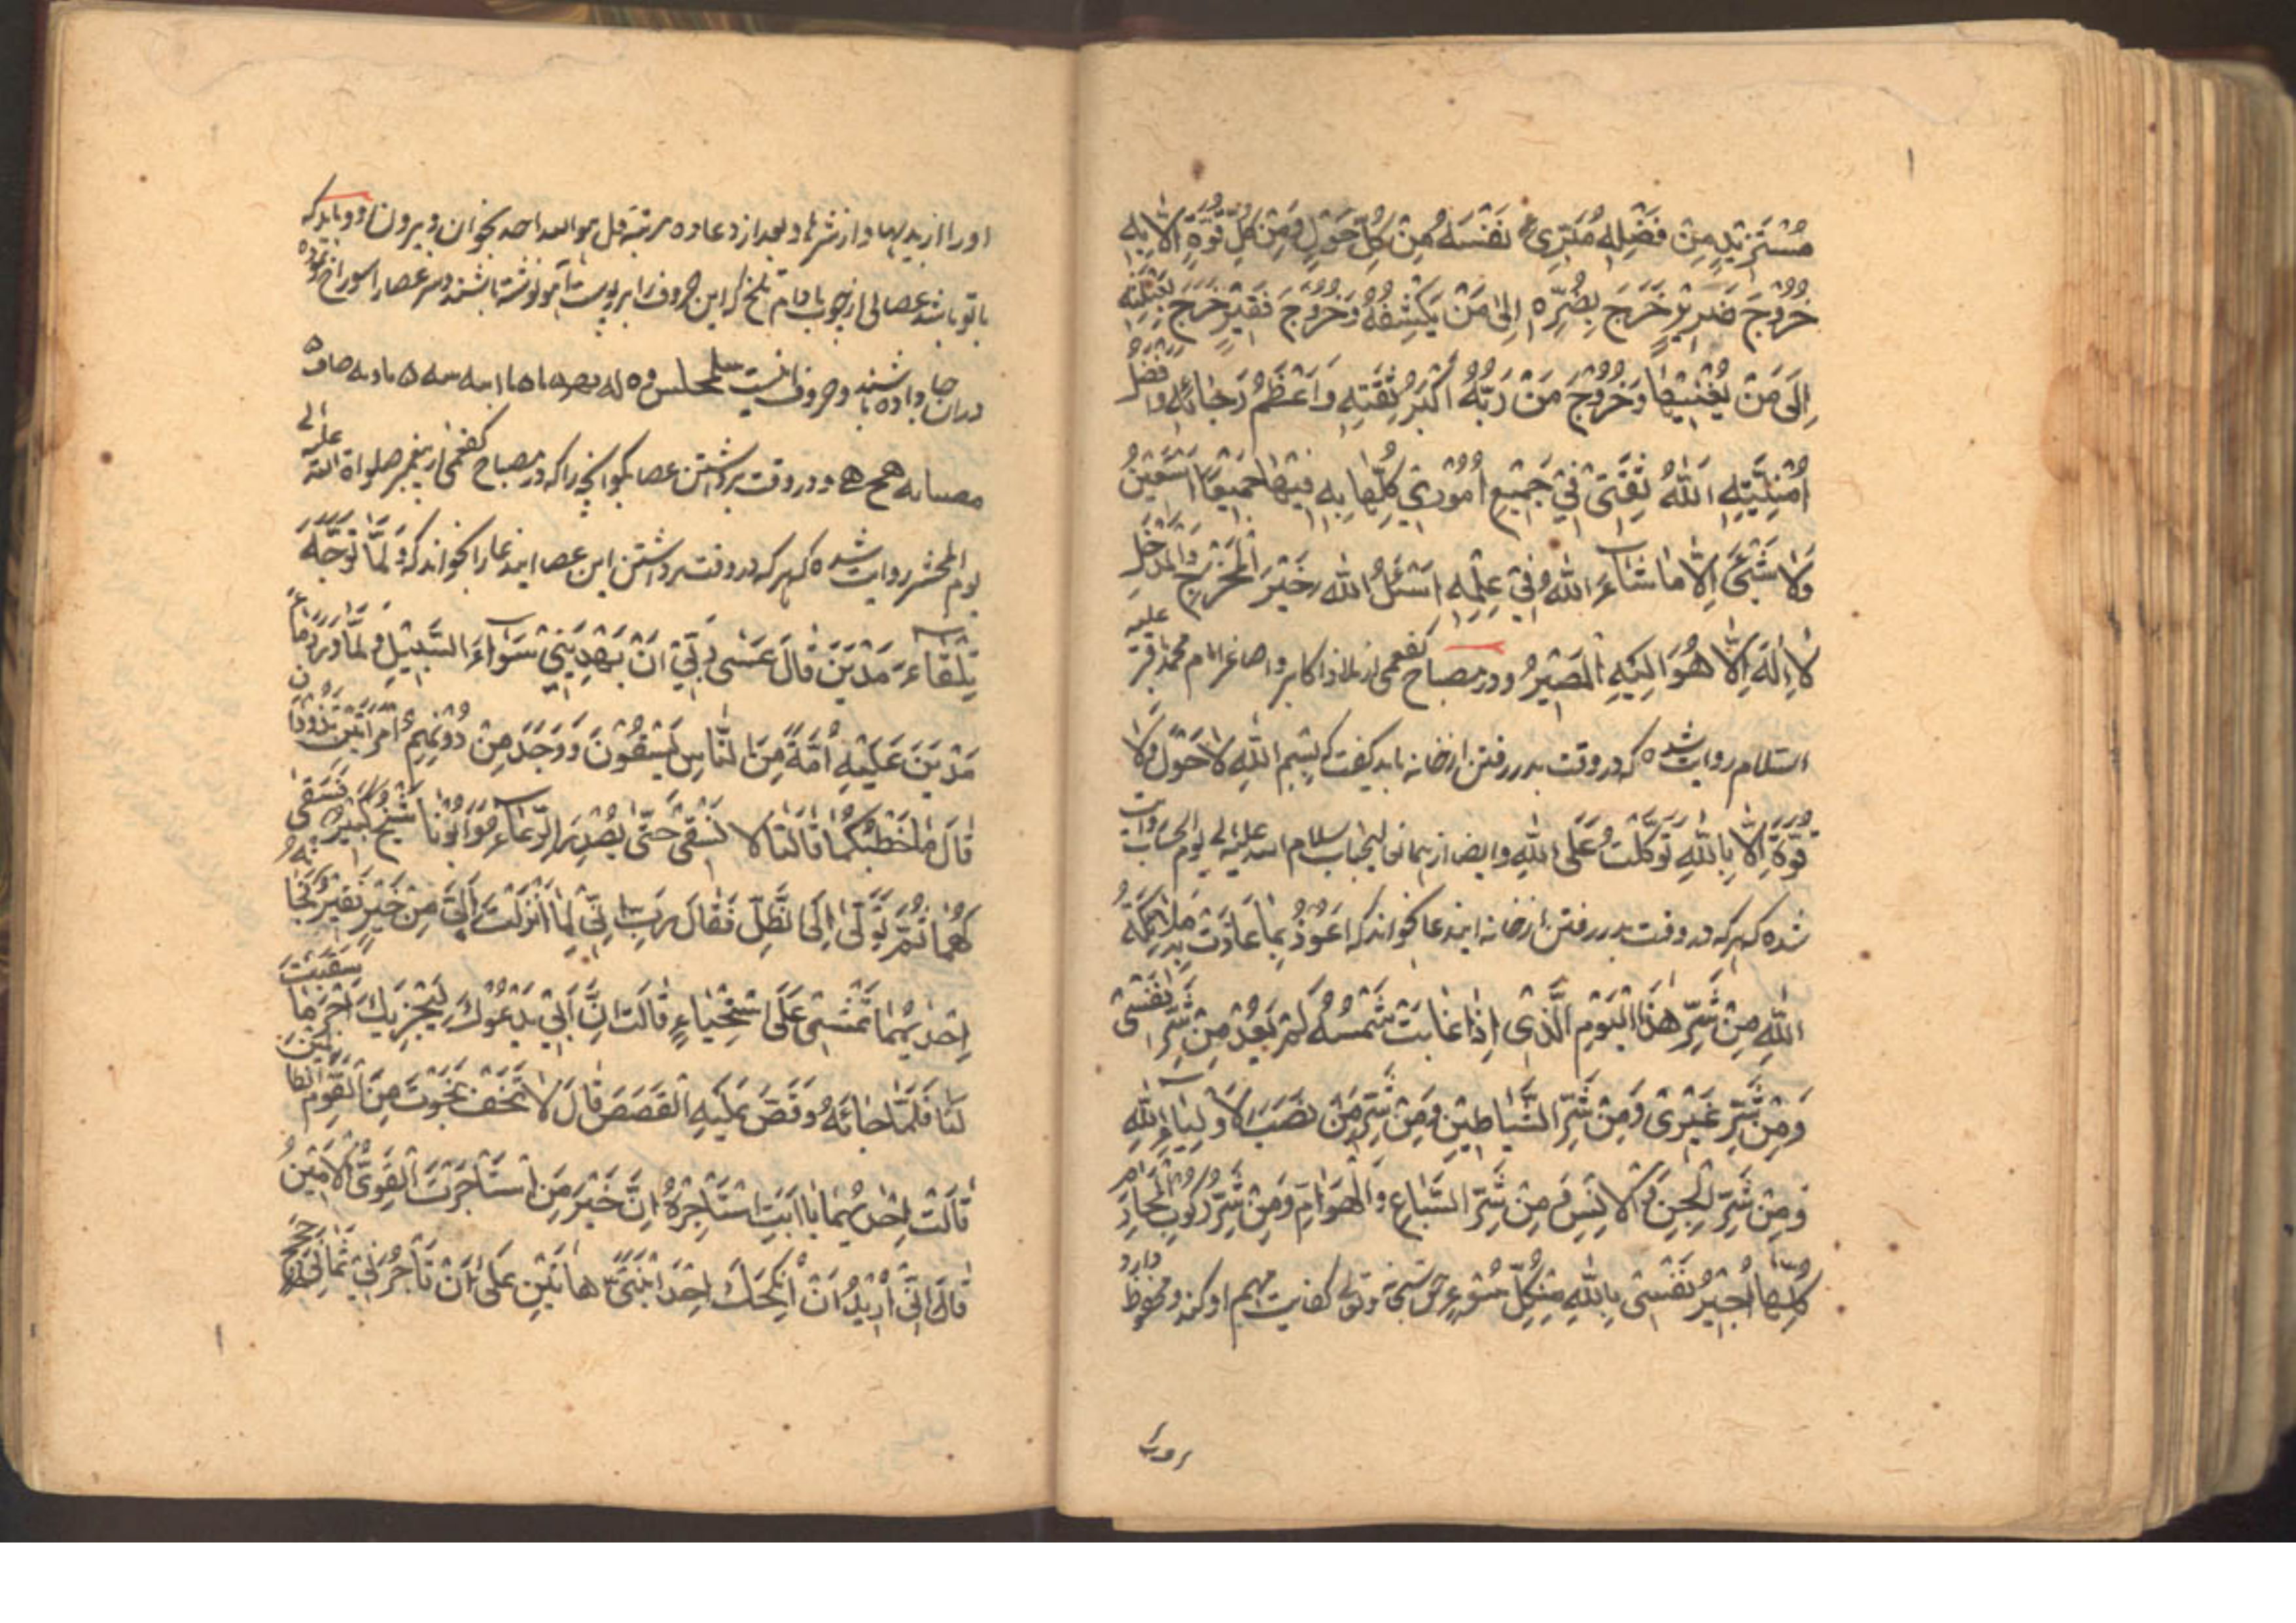 مُسْتَزِيْدٍ مِنْ فَضْلِهِ مُبَرِّئٍ نَفْسَهُ مِنْ كُلِّ حَوْلٍ وَمِنْ كُلِّ قُوَّةٍ اِلّا بِهِ
خُرُوْجَ ضَرِيْرٍ خَرَجَ بِضُرِّهِ اِلىٰ مَنْ يَكْشِفُهُ وَخُرُوْجَ فَقِيْرٍ خَرَجَ بِعَيْلَتِهِ
اِلىَ مَنْ يُغْنِيْهٰا وَخُرُوْجَ مَنْ رَبُّهُ اَكْبَرُ ثِقَتِهِ وَاَعْظَمُ رَجٰائِهِ وَاَفْضَلُ
اُمْنِيَّتِهِ اَللهُ ثِقَتىٰ فىْ جَمِيْعِ اُمُوْرىْ كُلِّهٰا بِهِ فِيْهٰا جَمِيْعًا اَسْتَعِيْنُ
وَلا شَىْءَ اِلّا مٰا شٰاءَ اللهُ فىْ عِلْمِهِ اَسْئَلُ اللهَ خَيْرَ الْمَخْرَجِ وَالْمَدْخَلِ
لاٰ اِلهَ اِلّا هُوَ اِلَيْهِ الْمَصِيْرُ و در مصباح كفعمى از ملاذ اكابر و اصاغر امام محمد باقر عليه
السّلام روايت شده كه در وقت بدر رفتن از خانه بايد گفت كه بِسْمِ اللهِ لاٰ حَوْلَ وَلا
قُوَّةَ اِلّا بِاللهِ تَوَكَّلْتُ عَلَى اللهِ و ايضا از همان عاليجناب سلام الله عليه الى يوم الحساب روايت
شده كه هر كه در وقت بدر رفتن از خانه ايندعا بخواند كه اَعُوْذُ بِمٰا عٰاذَتْ بِهِ مَلاٰئِكَةُ
اللهِ مِنْ شَرِّ هٰذَا الْيَوْمِ الَّذىْ اِذٰا غٰابَتْ شَمْسُهُ لَمْ يَعُدْ مِنْ شَرِّ نَفْسىْ
وَمِنْ شَرِّ غَيْرىْ وَمِنْ شَرِّ الشَّيٰاطِيْنِ وَمِنْ شَرِّ مَنْ نَصَبَ لِاَوْلِيٰاءِ اللهِ
وَمِنْ شَرِّ الْجِنِّ وَالْاِنْسِ وَمِنْ شَرِّ السِّبٰاعِ وَالْهَوٰامِّ وَمِنْ شَرِّ رُكُوْبِ الْمَحٰارِمِ
كُلِّهٰا اُجِيْرُ نَفْسىْ بِاللهِ مِنْ كُلِّ سُوْءٍ حق سبحانه و تعالى كفايت مهم او كند و محفوظ دارد
اورا
اورا از بديها و از شرها و بعد از دعا ده مرتبه قل هو الله احد بخوان و بيرون رو و بايد كه
با تو باشد عصائى از چوب بادام تلخ كه اين حروف را بر پوست آهو نوشته باشند و سر عصا را سوراخ نموده
در ان جا داده باشند و حروف اينست
و در وقت برداشتن عصا بگو انچه را كه در مصباح كفعمى از پيغمبر صلواة الله عليه الى
يوم المحشر روايت شده كه هر كه در وقت برداشتن اين عصا ايندعا را بخواند كه وَلَمّٰا تَوَجَّهَ
تِلْقٰاءَ مَدْيَنَ قٰالَ عَسٰى رَبّىْ اَنْ يَهْدِيَنىْ سَوٰاءَ السَّبِيْلِ وَلَمّٰا وَرَدَ مٰاءَ
مَدْيَنَ وَجَدَ عَلَيْهِ اُمَّةً مِنَ النّٰاسِ يَسْقُوْنَ وَوَجَدَ مِنْ دُوْنِهِمُ امْرَاَتَيْنِ تَذُوْدٰانِ
قٰالَ مٰا خَطْبُكُمٰا قٰالَتٰا لاٰ نَسْقىْ حَتّىٰ يُصْدِرَ الرِّعٰاءُ وَاَبُوْنٰا شَيْخٌ كَبِيْرٌ فَسَقىٰ
لَهُمٰا ثُمَّ تَوَلّىٰ اِلَى الظِّلِّ فَقٰالَ رَبِّ اِنّىْ لِمٰا اَنْزَلْتَ اِلَىَّ مِنْ خَيْرٍ فَقِيْرٌ فَجٰائَتْهُ
اِحْدٰيهُمٰا تَمْشىْ عَلَى اسْتِحْيٰاءٍ قٰالَتْ اِنَّ اَبىْ يَدْعُوْكَ لِيَجْزِيَكَ اَجْرَ مٰا سَقَيْتَ
لَنٰا فَلَمّٰا جٰائَهُ وَقَصَّ عَلَيْهِ الْقَصَصَ قٰالَ لاٰ تَخَفْ نَجَوْتَ مِنَ الْقَوْمِ الظّٰالِمِيْنَ
قٰالَتْ اِحْدٰيهُمٰا يٰا اَبَتِ اسْتَاْجِرْهُ اِنَّ خَيْرَ مَنِ اسْتَاْجَرْتَ الْقَوِىُّ الْاَمِيْنُ
قٰالَ اِنّىْ اُرِيْدُ اَنْ اُنْكِحَكَ اِحْدَى ابْنَتَىَّ هٰاتَيْنِ عَلىٰ اَنْ تَاْجُرَنىْ ثَمٰانِىَ حِجَجٍ